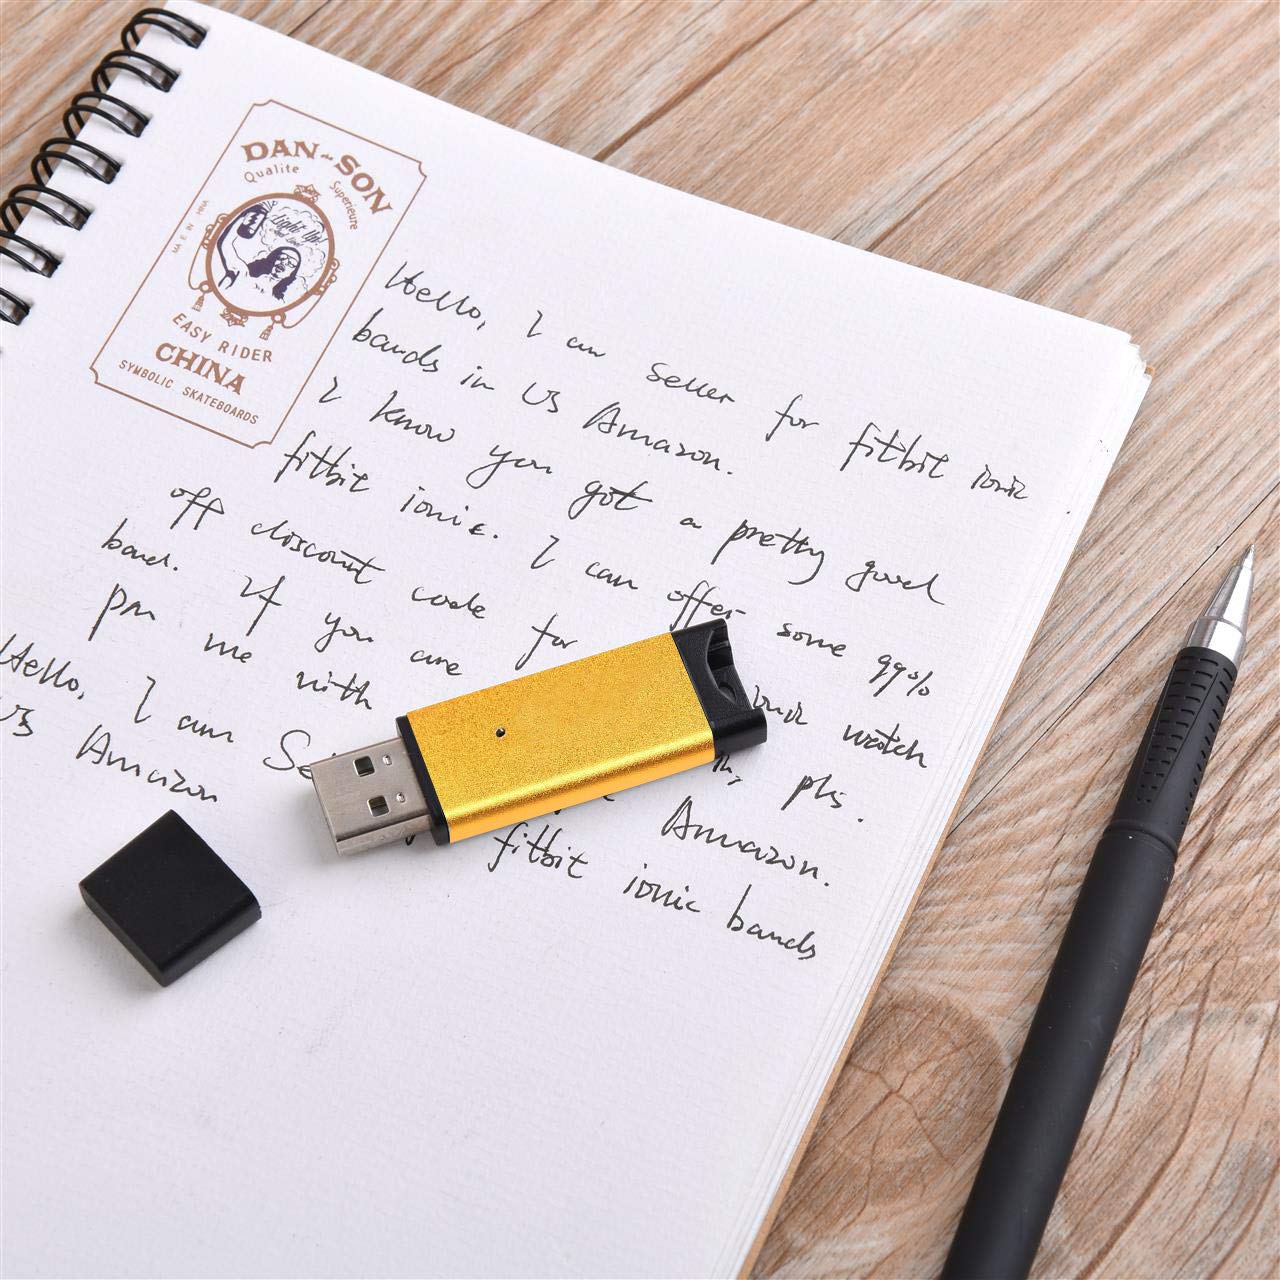 DAN de SON
Qualite Superieure
Light Up!
EASY RIDER
CHINA
SYMBOLIC SKATEBOARDS
Hello, I am seller for fitbit ionic
bands in US Amazon.
I know you got a pretty good
fitbit ionic. I can offer some 99%
off discount code for ionic watch
band. If you are
pm me with plz.
Hello, I am Amazon.
US Amazon fitbit ionic bands